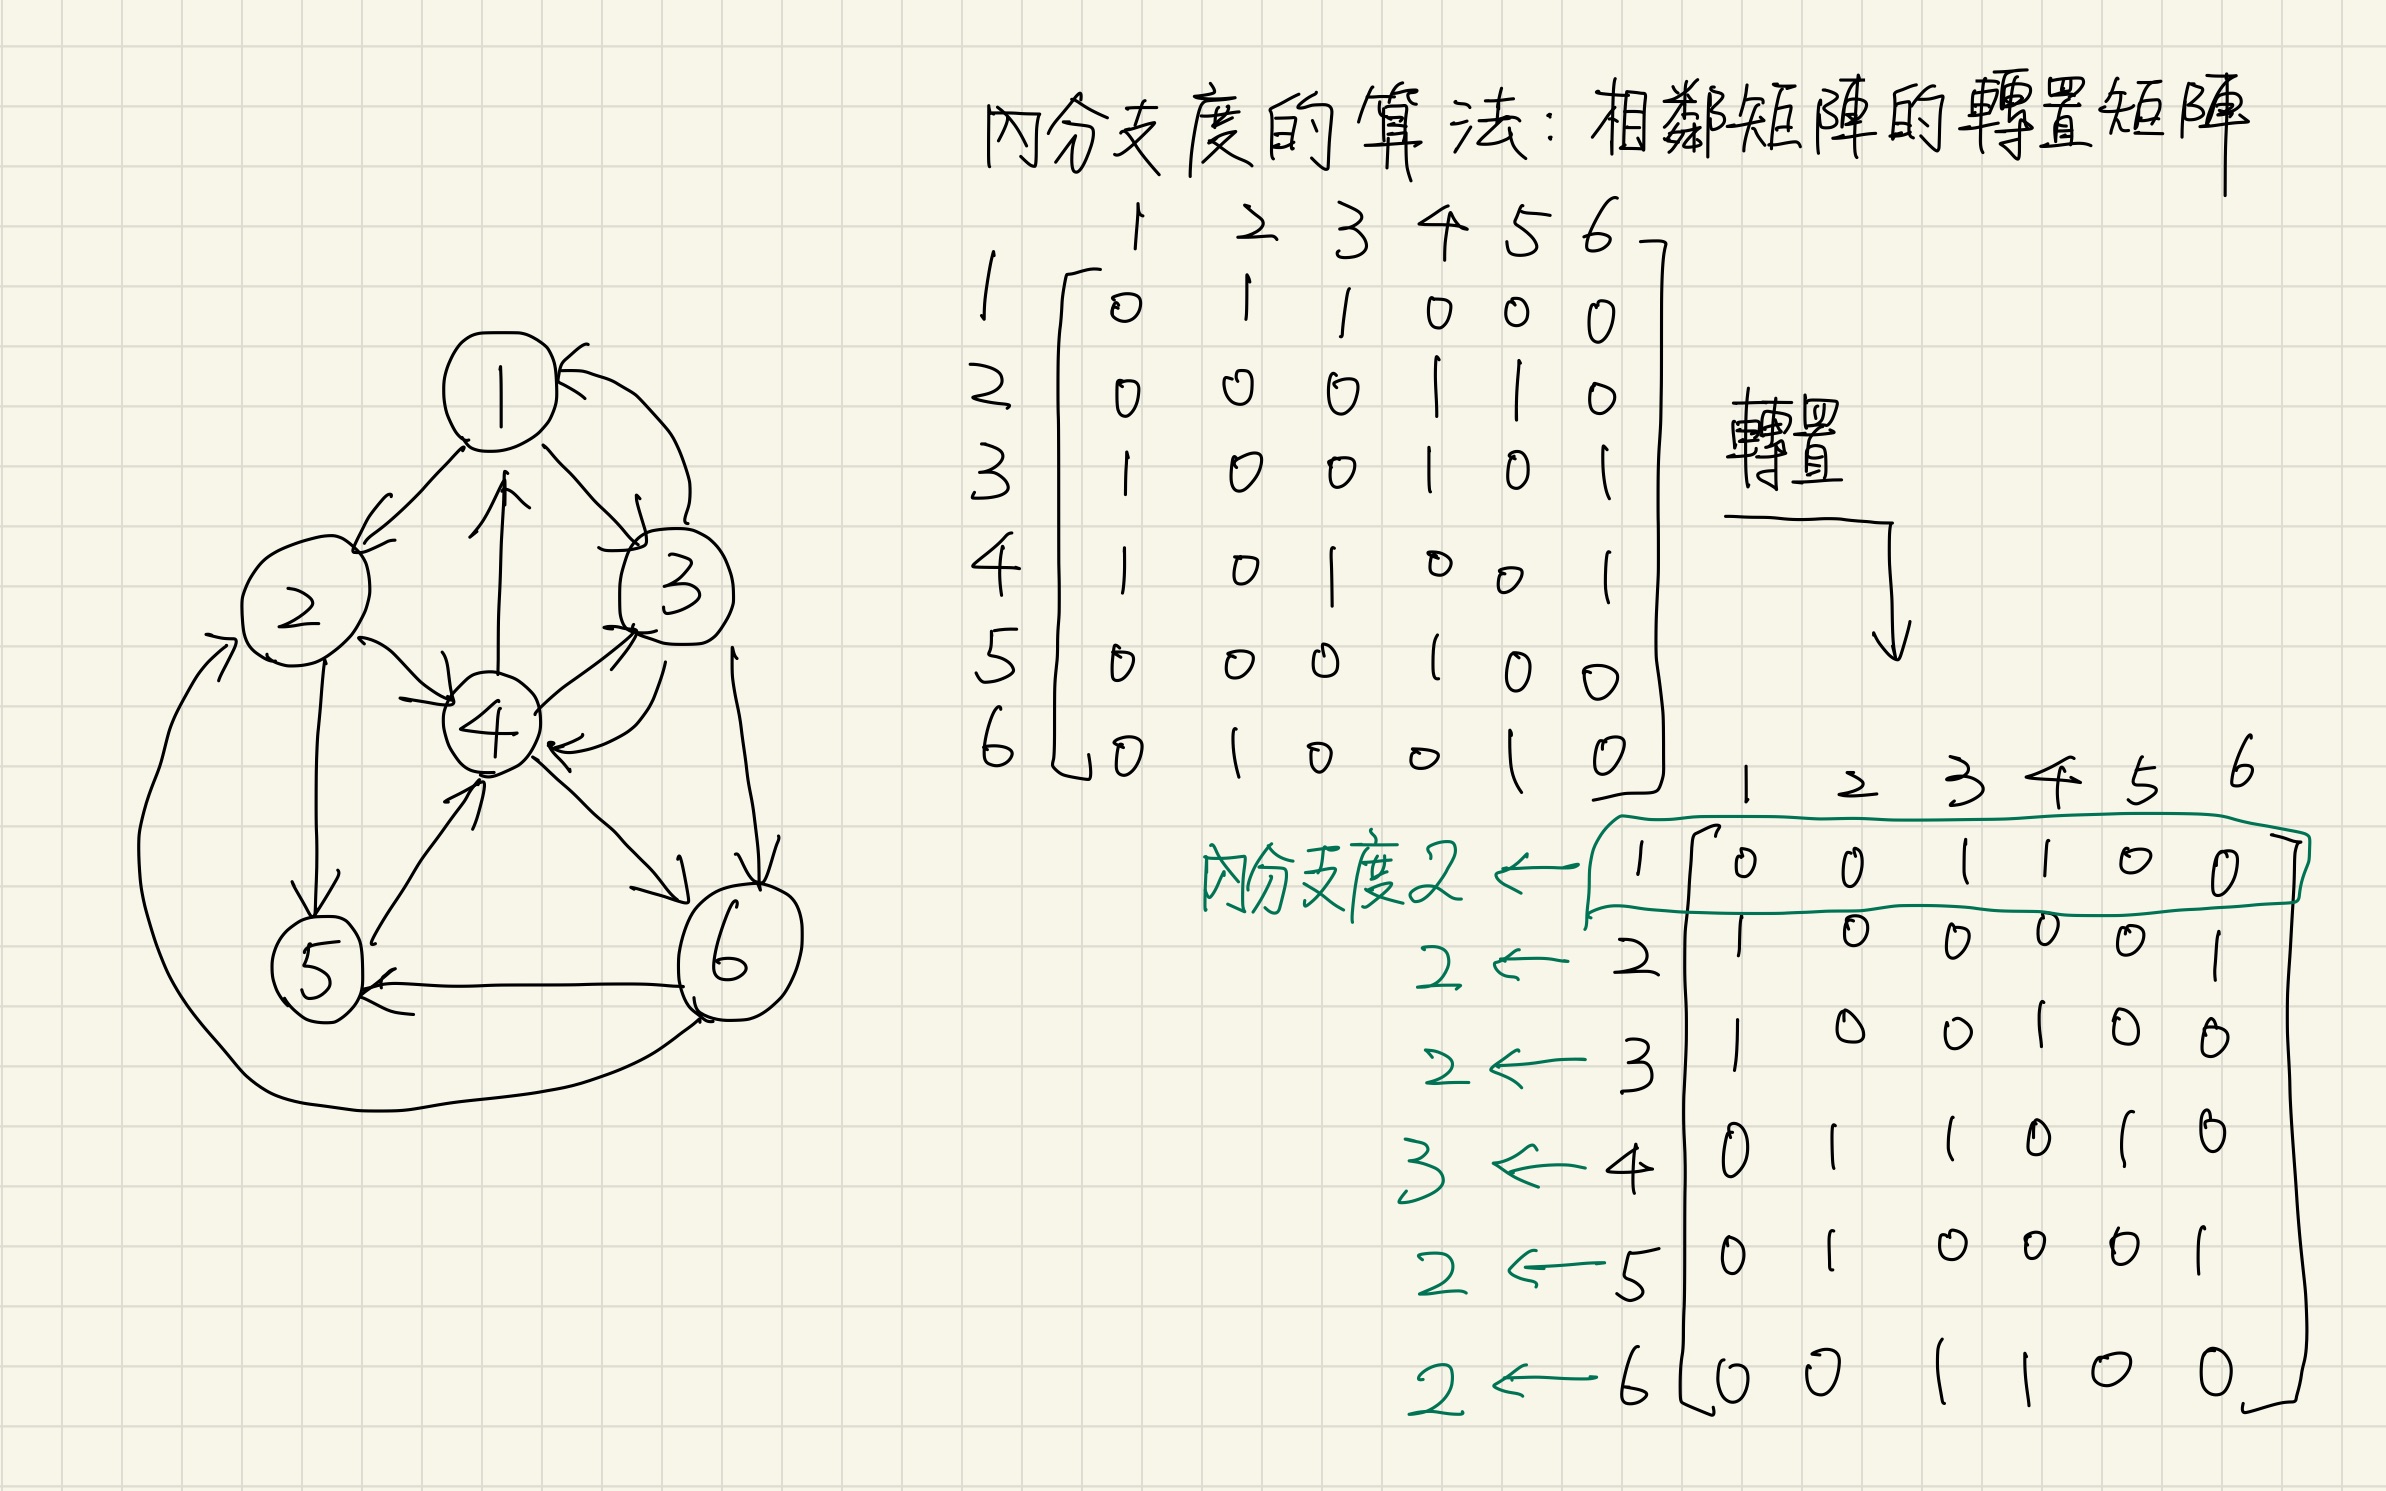 內分支度的算法:相鄰矩陣的轉置矩陣
1 2 3 4 5 6
1 0 1 1 0 0 0
2 0 0 0 1 1 0
3 1 0 0 1 0 1
4 1 0 1 0 0 1
5 0 0 0 1 0 0
6 0 1 0 0 1 0
轉置
1
2
3
4
5
6
1 2 3 4 5 6
內分支度2 ← 1 0 0 1 1 0 0
2 ← 2 1 0 0 0 0 1
2 ← 3 1 0 0 1 0 0
3 ← 4 0 1 1 0 1 0
2 ← 5 0 1 0 0 0 1
2 ← 6 0 0 1 1 0 0